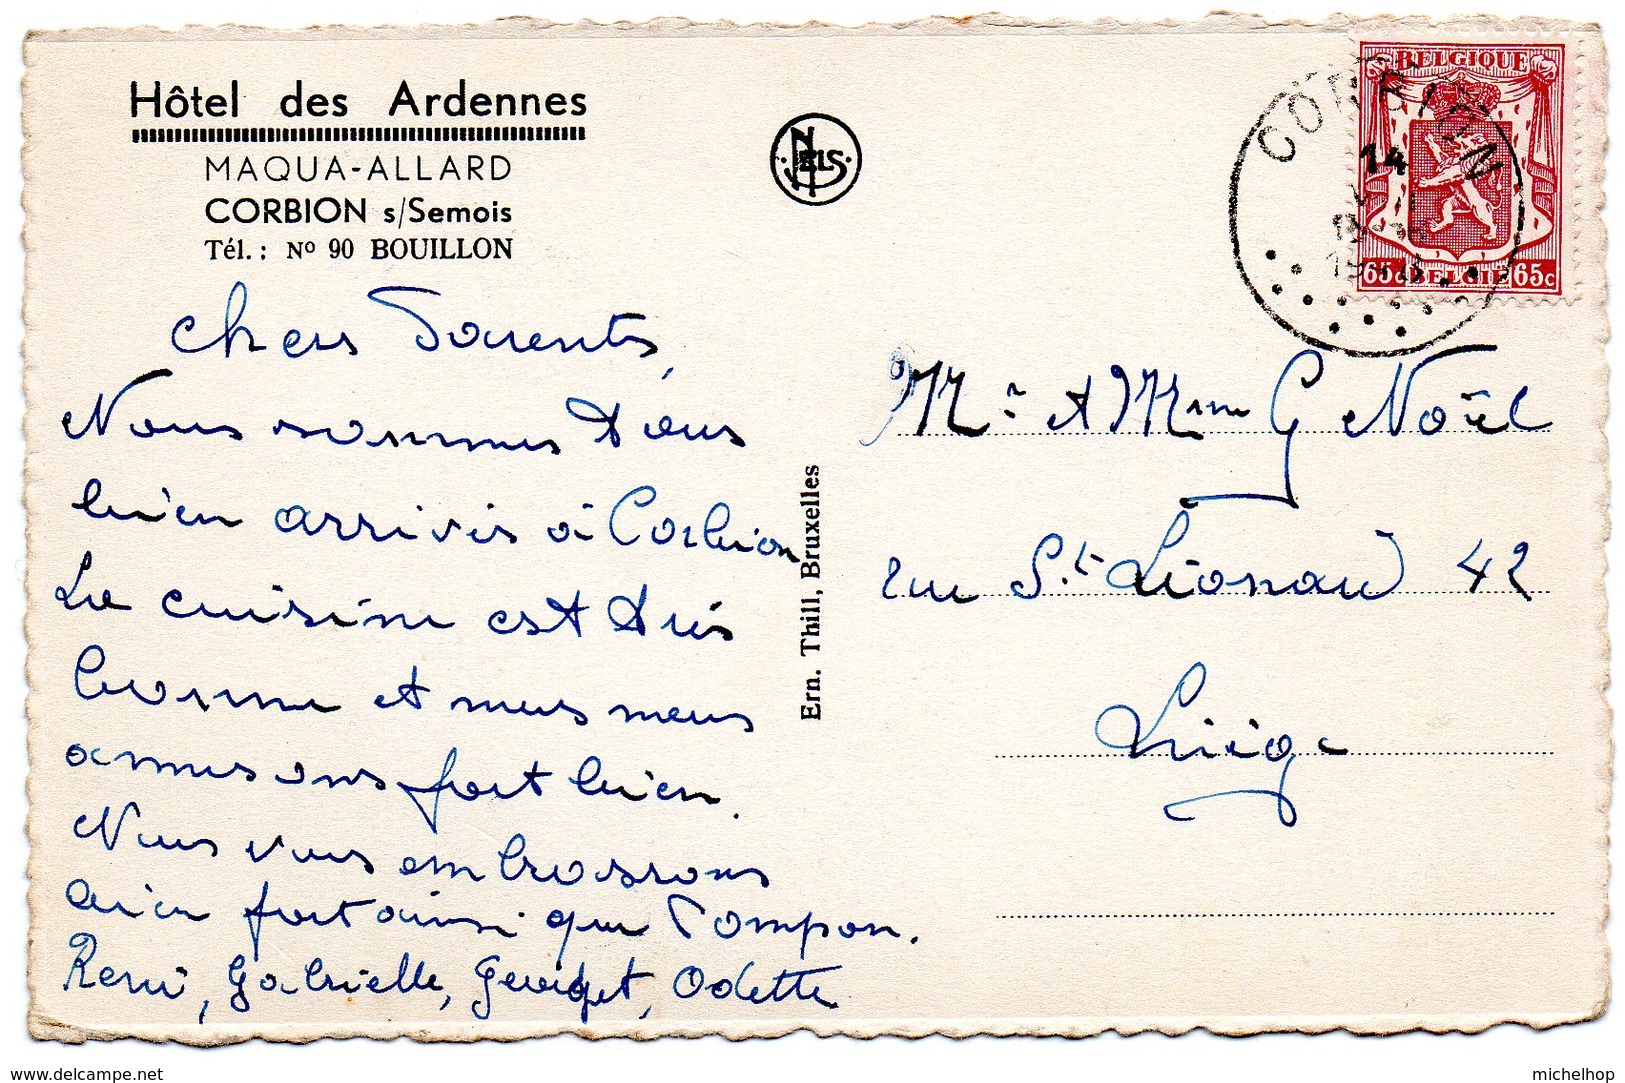 Hôtel des Ardennes
MAQUA-ALLARD
CORBION s/Semois
Tél. : Nº 90 BOUILLON
Chers Parents,
Nous sommes tous
bien arrivés à Corbion
La cuisine est très
bonne et nous nous
amusons fort bien.
Nous vous embrassons
bien fort ainsi que Pompon.
René, Gabrielle, Odette
Ern. Thill, Bruxelles
NELS
BELGIQUE
65c BELGIE 65c
CORBION
14
Mr et Mme G Noël
rue St Léonard 42
Liège
www.delcampe.net
michelhop